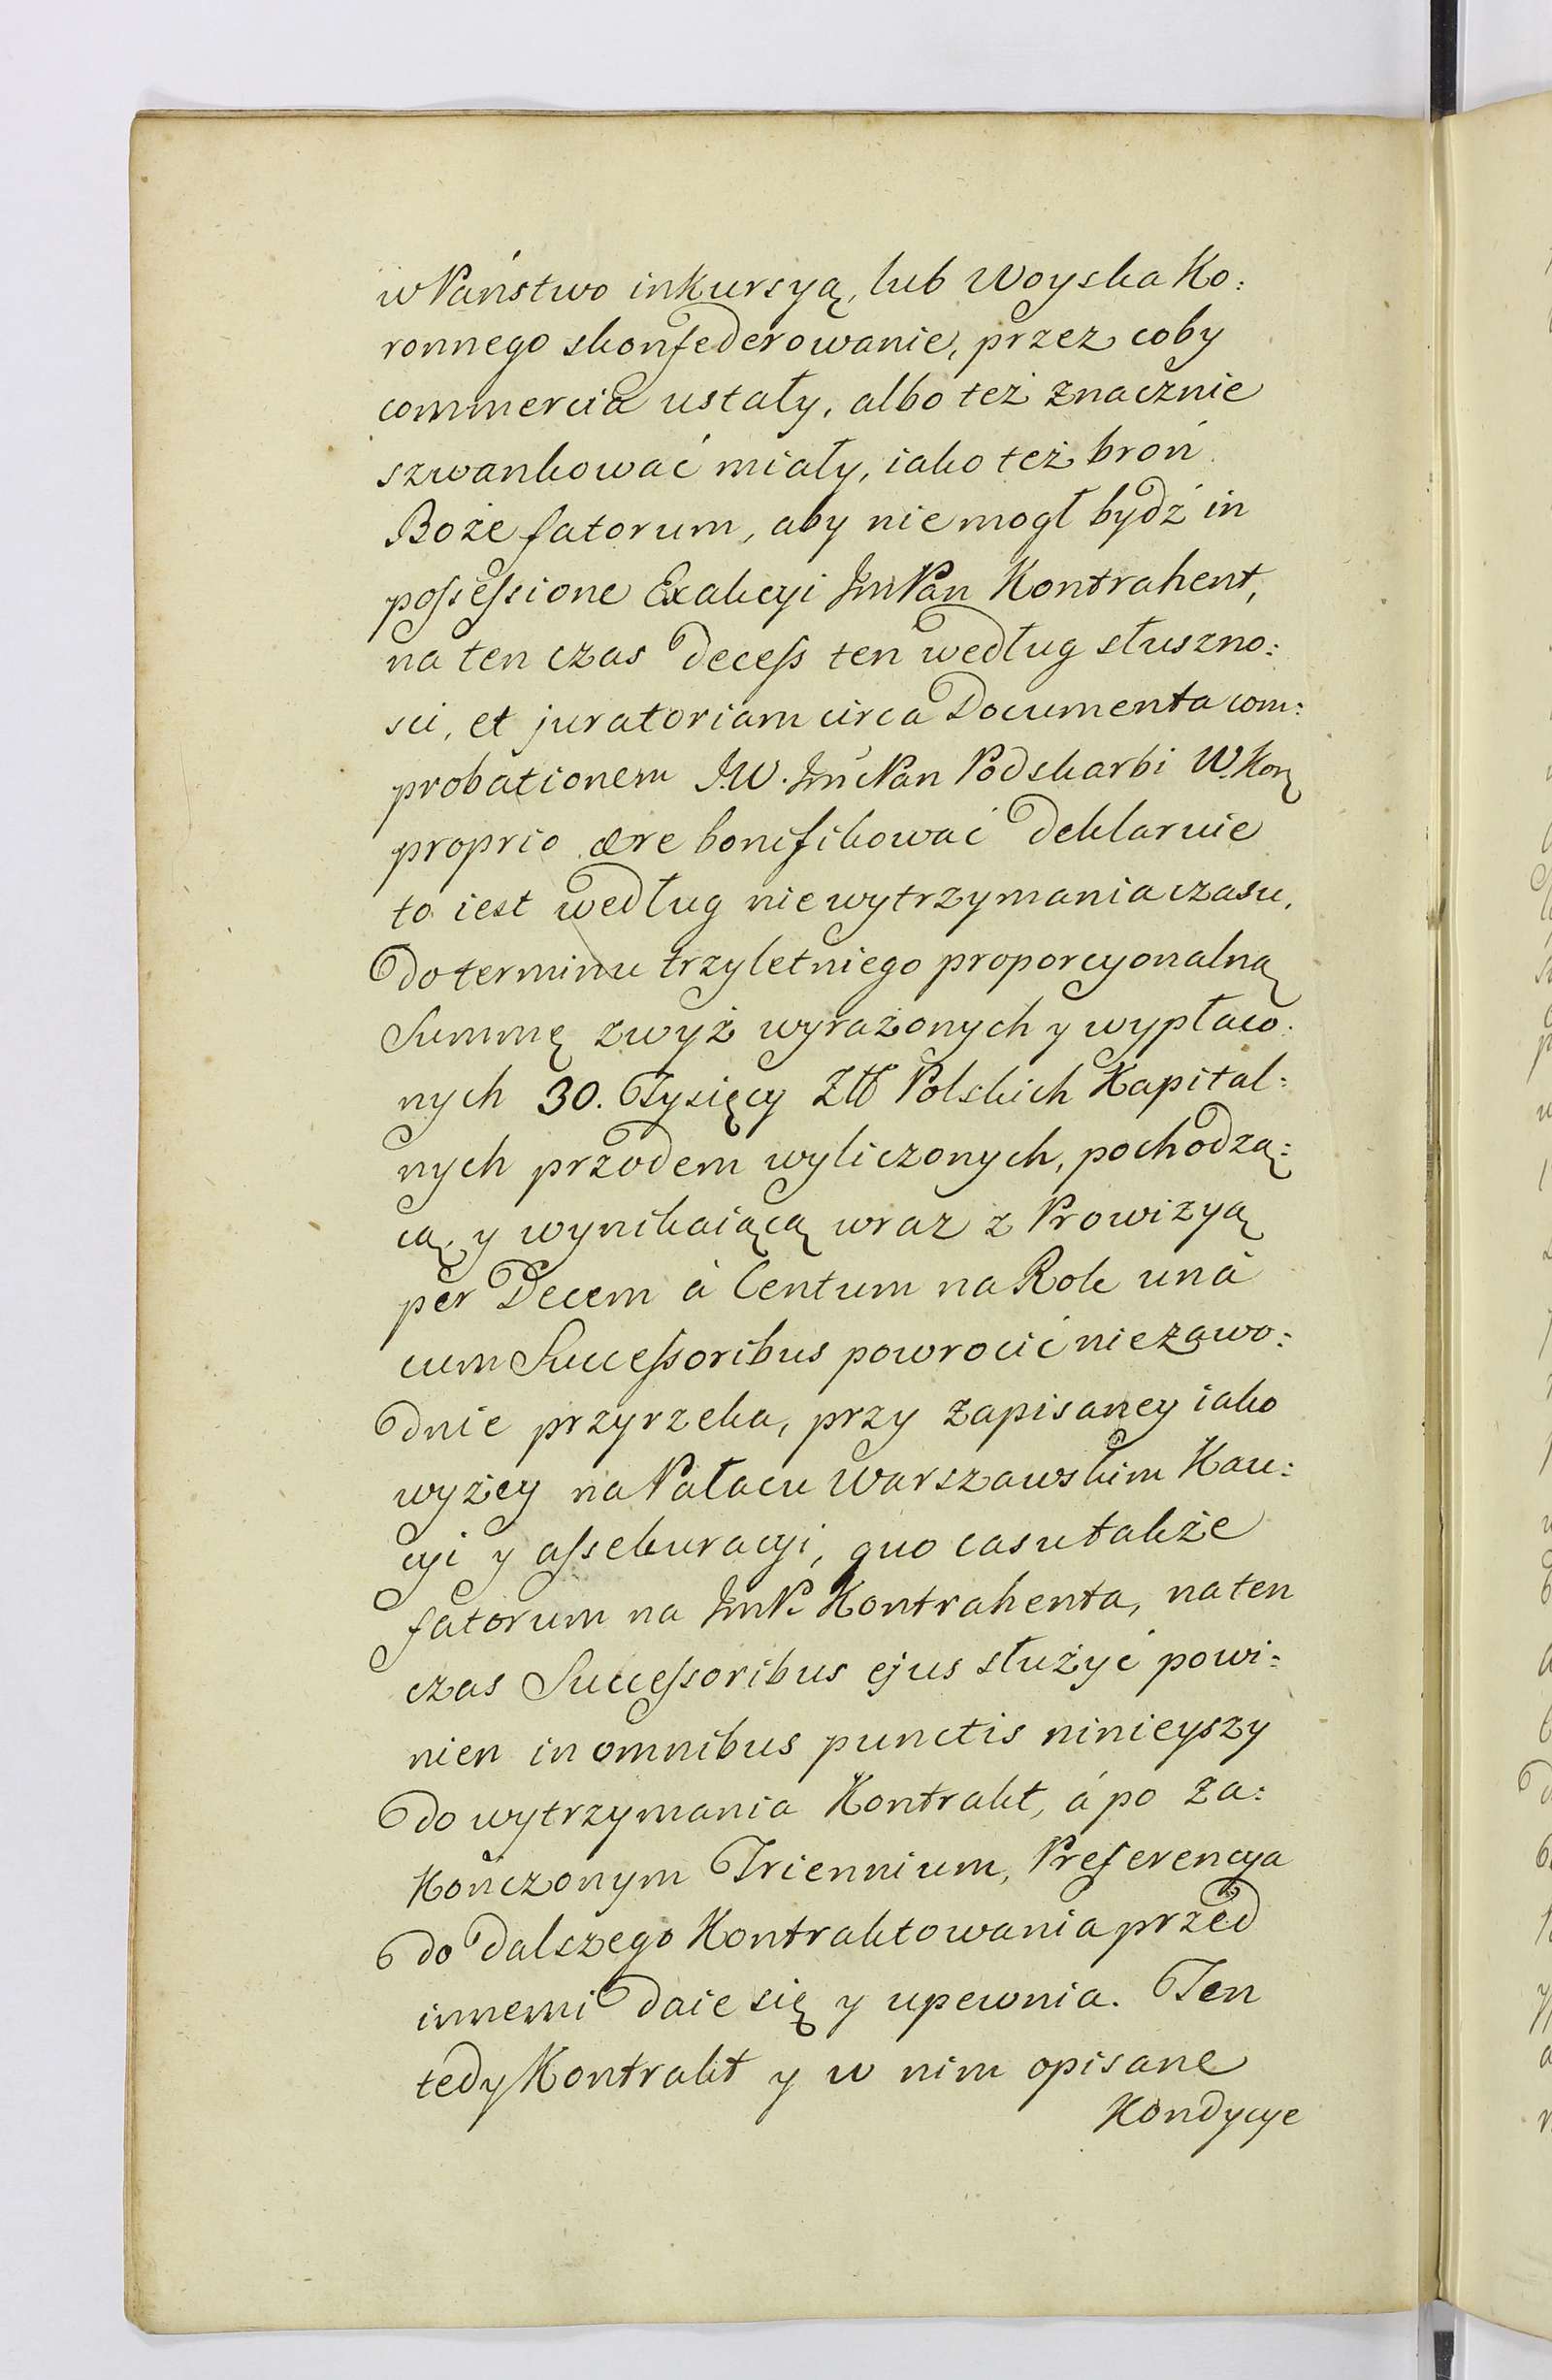 w Państwo inkursyą, lub Woyska Ko:
ronnego skonfederowanie, przez coby
commercia ustały, albo też znacznie
szwankować miały, iako też broń
Boże fatorum, aby nie mogł bydź in
poſseſsione Exakcyi Jm Pan Kontrahent,
na ten czas deceſs ten według słuszno:
sci, et juratoriam circa Documenta com:
probationem J.W. Jmć Pan Podskarbi W. Kor
proprio ære bonifikować deklaruie
to iest według nie wytrzymania czasu,
do terminu trzyletniego proporcyonalną
Summę zwyż wyrażonych y wypłaco:
nych 30. Tysięcy Złł Polskich Kapital:
nych przodem wyliczonych, pochodzą:
cą, y wynikaiącą wraz z Prowizyą
per Decem à Centum na Rok unà
cum Succeſsoribus powrocić niezawo:
dnie przyrzeka, przy zapisaney iako
wyżey na Pałacu Warszawskim Kau:
cyi y aſsekuracyi, quo casu także
fatorum na Jm P. Kontrahenta, na ten
czas Succeſsoribus ejus służyć powi:
nien in omnibus punctis ninieyszy
do wytrzymania Kontrakt, á po za:
kończonym Triennium, Preferencya
do dalszego Kontraktowania przed
innemi daie się y upewnia. Ten
tedy Kontrakt y w nim opisane
Kondycye